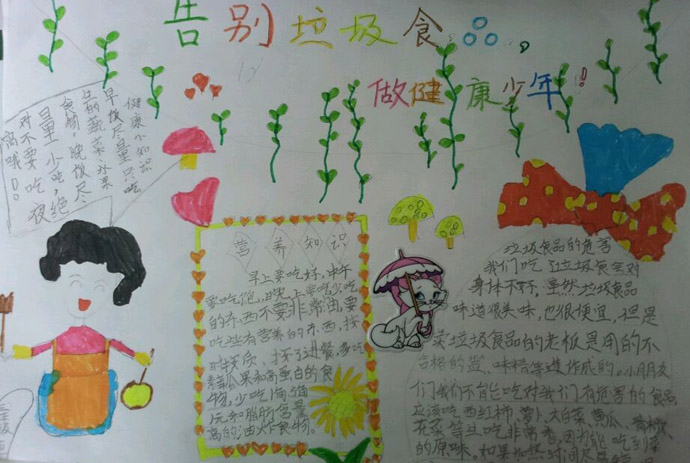 告别垃圾食品，
做健康少年！
健康小知识
早饭尽量只吃
上的蔬菜水果
食物，晚饭尽
量少吃，绝
对不要吃夜
宵哦！
营养知识
早上要吃好，中午
要吃饱，晚上要吃少吃
的东西不要非常油，要
吃些有营养的东西，按
时按质、按
和高蛋白的食
物，少吃
和脂肪含量
高的油炸食物。
垃圾食品的危害
我们吃垃圾食会对
身体不好，虽然垃圾食品
味道很美味，也很便宜，但是
卖垃圾食品的老板是用的不
合格的盐、味精等造作成的。小朋友
们我们不能吃对我们有危害的食品
应该吃西红柿、萝卜、大白菜、黄瓜、
花菜等且吃非常香，因为能吃到菜
的原味。如果加热时间尽量
三年级